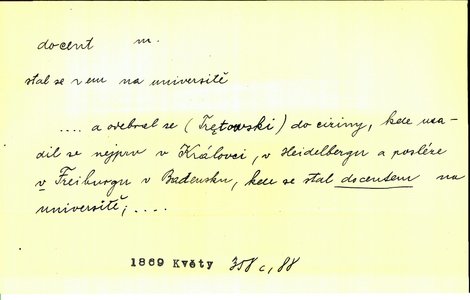 docent m.
stal se v em na universitě
.... a odebral se (Trętowski) do ciziny, kde usa-
dil se nejprv v Královci, v Heidelbergu a posléze
v Freiburgu v Badensku, kde se stal docentem na
universitě; ....
1869 Květy 358 c, 88